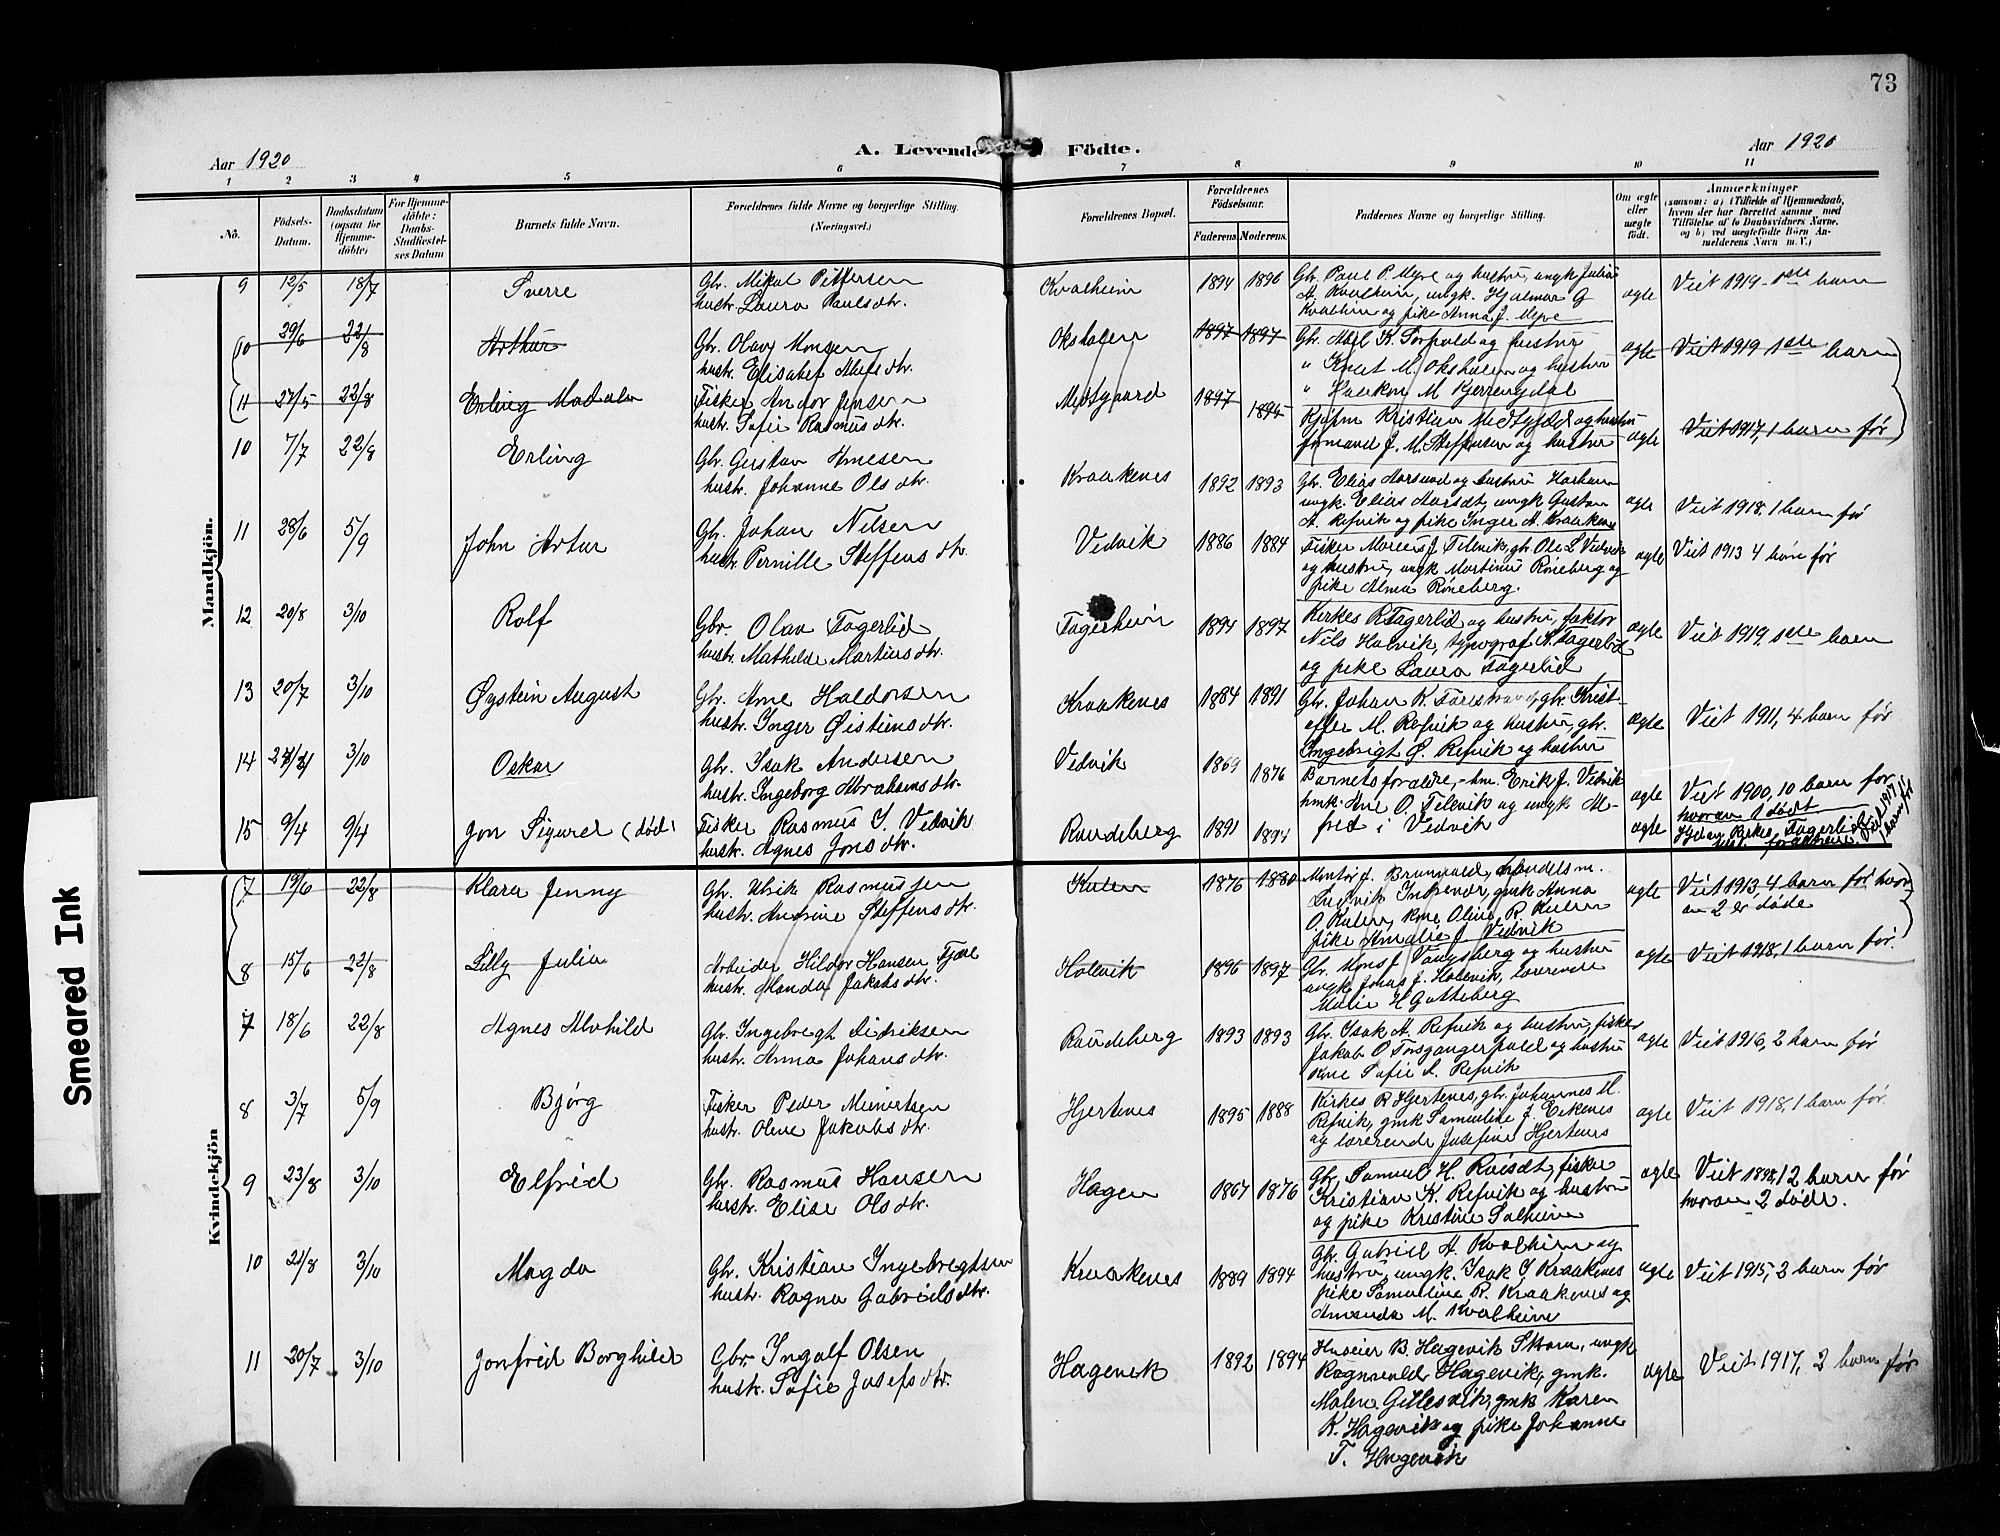 73
Aar 1920
A. Levende Födte.
Aar 1920
1 2 3 4 5 6 7 8 9 10 11
No.
Födsels-Datum.
Daabsdatum (ogsaa for Hjemme-döbte)
For Hjemme-döbte: Daabs-Stadfæstelses Datum
Barnets fulde Navn.
Forældrenes fulde Navne og borgerlige Stilling. (Næringsvei.)
Forældrenes Bopæl.
Forældrenes Födselsaar.
Faderens. Moderens.
Faddernes Navne og borgerlige Stilling.
Om ægte eller uægte födt.
Anmærkninger
(saasom: a) i Tilfælde af Hjemmedaab,
hvem der har forrettet samme med
Tilföielse af to Daabsvidners Navne.
og b) ved uægtefödte Börn An-
melderens Navn m. V.)
Mandkjön.
9 12/5 18/7 Sverre Gbr. Mikal Pettersen
hustr. Laura Paulsdtr. Kvalheim 1894 1896 Gbr. Paul P. Myre og hustru, ungk Julius
A. Kvalheim, ungk. Hjalmar G
Kvalheim og pike Anna J. Myre ægte Viet 1919 1ste barn
10 29/6 22/8 Arthur Gbr. Olav Monsen
hustr. Elisabet dtr. Oksholen 1897 1897 Gbr. K. og hustru
" Knut M. Oksholen og hustru
" Haakon M ægte Viet 1919 1ste barn
11 27/5 22/8 Erling Fisker Andor Jensen
hustr. Sofie Rasmusdtr. 1897 1895 Kristian og hustru
formand J. M. Steffensen og hustru ægte Viet 1917, 1 barn før
10 7/7 22/8 Erling Gbr. Gustav Arnesen
hustr. Johanne Olsdtr. Kraakenes 1892 1893 Gbr. Elias og hustru
ungk. Elias ungk Gustav
A. Refvik og pike Inger A. Kraakenes ægte Viet 1918, 1 barn før
11 28/6 5/9 John Artur Gbr. Johan Nilsen
hustr. Pernille Steffensdtr. Vedvik 1886 1884 Fisker J. gbr. Ole S Vedvik
og hustru, ungk Martinus Røneberg og
pike Alma Røneberg. ægte Viet 1913 4 barn før
12 20/8 3/10 Rolf Gbr. Olav Fagerlid
hustr. Mathilde Martinsdtr. Fagerheim 1894 1897 Kirkes R Fagerlid og hustru, faktor
Nils Halvik, typograf A. Fagerlid
og pike Laura Fagerlid ægte Viet 1919, 1ste barn
13 20/7 3/10 Øystein August Gbr. Arne Haldorsen
hustr. Inger Øistensdtr. Kraakenes 1884 1891 Gbr. Johan K. gbr. Krist-
offer M. Refvik og hustru, gbr.
Ingebrigt Ø. Refvik og hustru ægte Viet 1911, 4 barn før
14 3/10 Oskar Gbr. Isak Andersen
hustr. Ingeborg Abrahamsdtr. Vedvik 1869 1876 Barnets forældre, Erik J. Vedvik
gmk. Ane O. og ungk Al-
fred i Vedvik ægte Viet 1900, 10 barn før
hvorav 1 dødt
15 9/4 9/4 Jon Sigurd (død) Fisker Rasmus I. Vedvik
hustr. Agnes Jonsdtr. Raudeberg 1891 1894 ægte Fagerlid Viet 1917 1 barn før
Kvindekjön
7 19/6 22/8 Klara Jenny Gbr. Ulrik Rasmussen
hustr. Andrine Steffensdtr. 1876 1880 J. handelsm.
Ludvik gmk Anna
O. kone Oline R.
pike Amalie J. Vedvik ægte Viet 1913, 4 barn før hvor-
av 2 er døde
8 15/6 22/8 Lilly Julia Arbeider Hildor Hansen
hustr. Manda Jakobsdtr. Holevik 1896 1897 Gbr. Mons J. Vaagsberg og hustru
ungk. Jonas J. Holevik, lærerinde
Malie H Gotteberg ægte Viet 1918, 1 barn før
7 18/6 22/8 Agnes Alvhild Gbr. Ingebregt Didriksen
hustr. Anna Johansdtr. Raudeberg 1893 1893 Gbr. Isak A. Refvik og hustru, fisker
Jakob O og hustru
kone Sofie A. Refvik ægte Viet 1916, 2 barn før
8 3/7 5/9 Bjørg Fisker Peder
hustr. Olene Jakobsdtr. Hjertenes 1895 1888 Kirkes R Hjertenes, gbr. Johannes M.
Refvik, gmk Samueline J.
og lærerinde Josefine Hjertenes ægte Viet 1918, 1 barn før
9 23/8 3/10 Elfrid Gbr. Rasmus Hansen
hustr. Elise Olsdtr. Hagen 1867 1876 Gbr. Samuel H. fisker
Kristian K. Refvik og hustru
og pike Kristine Solheim ægte Viet 1898, 12 barn før
hvorav 2 døde.
10 21/8 3/10 Magda Gbr. Kristian Ingebregtsen
hustr. Ragna Gabrielsdtr. Kraakenes 1889 1894 Gbr. Gabriel A. Kvalheim og
hustru, ungk. Isak I Kraakenes
pike Samueline R. Kraakenes og
Amanda M. Kvalheim ægte Viet 1915, 3 barn før
11 20/7 3/10 Jonfrid Borghild Gbr. Ingolf Olsen
hustr. Sofie Josefsdtr. Hagevik 1892 1894 B. Hagevik ungk
Ragnvald Hagevik, gmk.
Malen Gillesvik, gmk Karen
K. Hagevik og pike Johanne
T. Hagevik ægte Viet 1917, 2 barn før
Smeared Ink